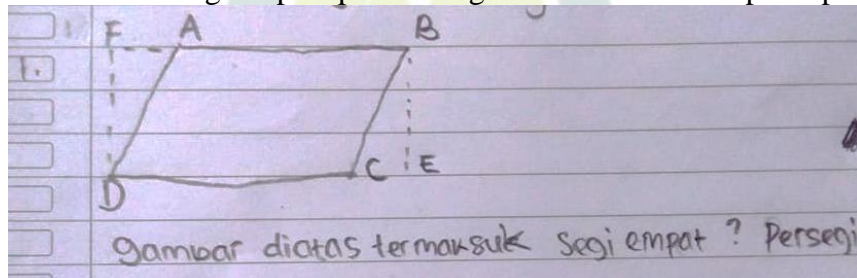 F A B
1.
D C E
gambar diatas termaksuk segi empat ? Persegi